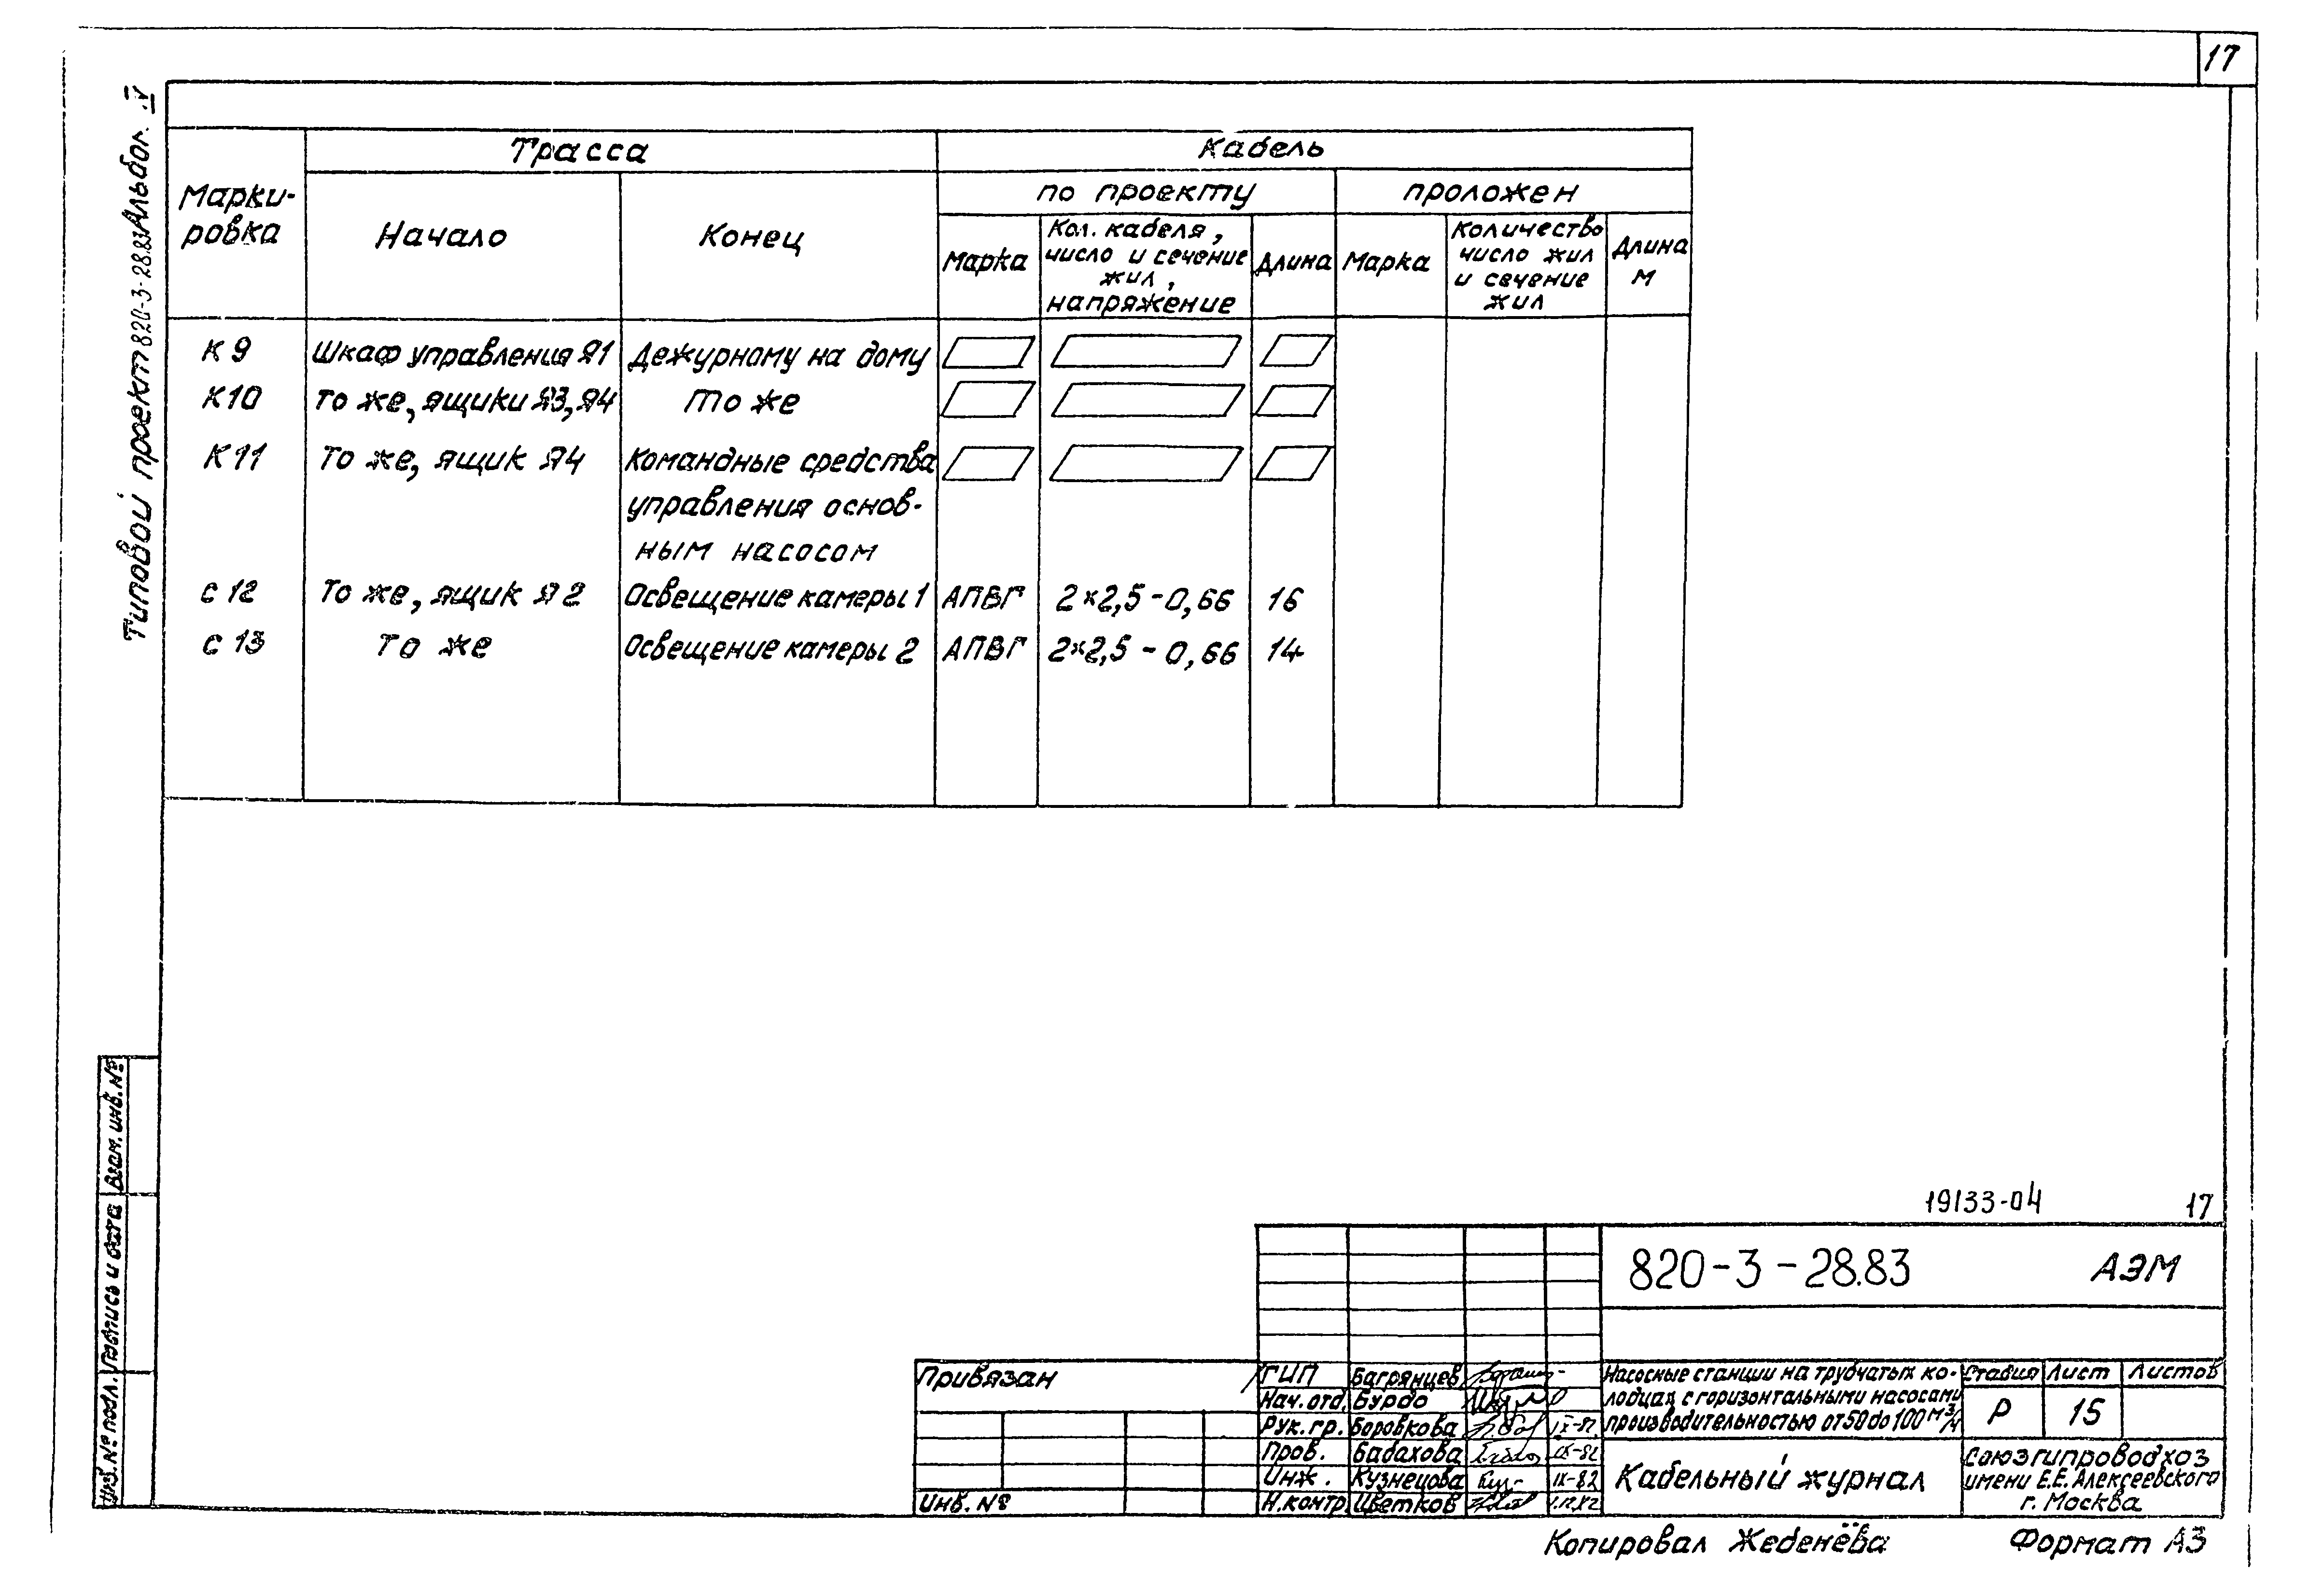 17
Типовой проект 820-3-28.83 Альбом IV
Трасса
Кабель
Марки-
ровка
Начало
Конец
по проекту
проложен
Марка
Кол. кабеля,
число и сечение
жил,
напряжение
Длина
Марка
Количество
число жил
и сечение
жил
Длина
м
К 9 Шкаф управления Я1 Дежурному на дому
К10 То же, ящики Я3, Я4 То же
К 11 То же, ящик Я4 Командные средства
управления основ-
ным насосом
С 12 То же, ящик Я2 Освещение камеры 1 АПВГ 2×2,5-0,66 16
С 13 То же Освещение камеры 2 АПВГ 2×2,5-0,66 14
Взам. инв. №
Подпись и дата
Инв. № подл.
19133-04 17
820-3-28.83 АЭМ
Привязан
Инв. №
ГИП Багрянцев
Нач. отд. Бурдо
Рук. гр. Боровкова IX-82
Пров. Бабахова IX-82
Инж. Кузнецова IX-82
Н. контр. Цветков
Насосные станции на трубчатых ко-
лодцах с горизонтальными насосами
производительностью от 50 до 100 м³/ч
Стадия Лист Листов
Р 15
Кабельный журнал
Союзгипроводхоз
имени Е.Е. Алексеевского
г. Москва
Копировал Жеденёва Формат А3